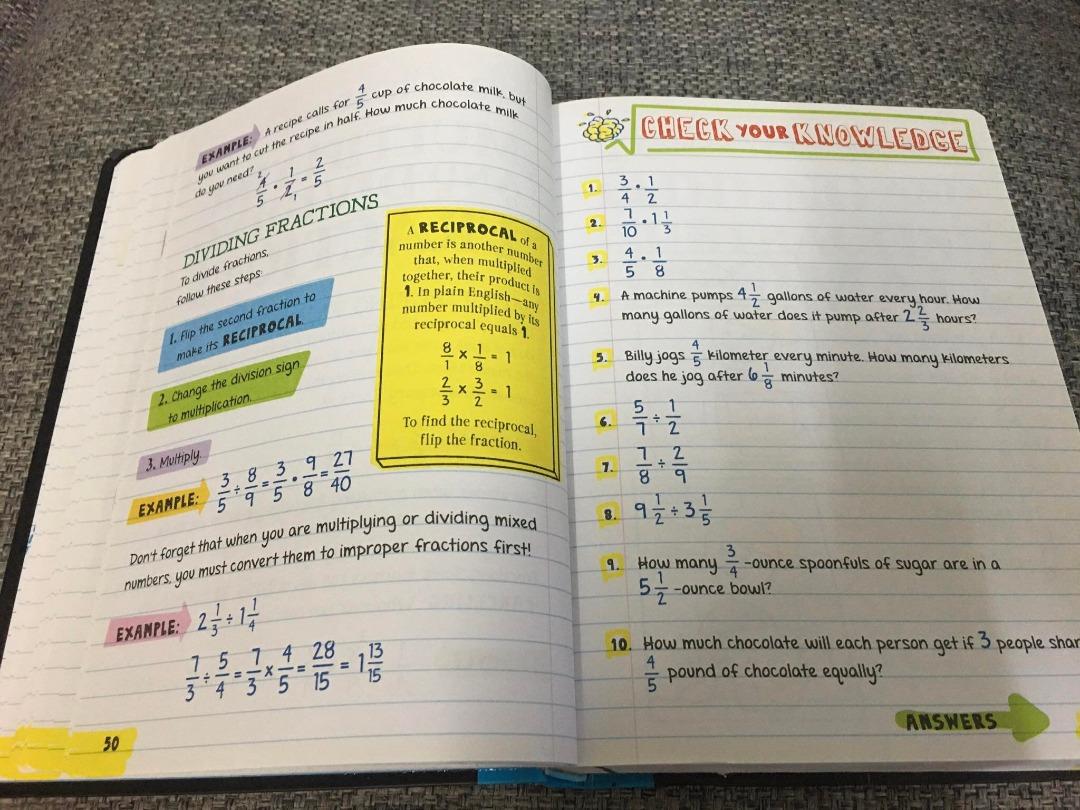 EXAMPLE: A recipe calls for 4/5 cup of chocolate milk, but
you want to cut the recipe in half. How much chocolate milk
do you need?
4/5 · 1/2 = 2/5
2 1
DIVIDING FRACTIONS
To divide fractions,
follow these steps:
1. Flip the second fraction to
make its RECIPROCAL.
2. Change the division sign
to multiplication.
3. Multiply.
EXAMPLE: 3/5 ÷ 8/9 = 3/5 · 9/8 = 27/40
A RECIPROCAL of a
number is another number
that, when multiplied
together, their product is
1. In plain English—any
number multiplied by its
reciprocal equals 1.
8/1 x 1/8 = 1
2/3 x 3/2 = 1
To find the reciprocal,
flip the fraction.
Don't forget that when you are multiplying or dividing mixed
numbers, you must convert them to improper fractions first!
EXAMPLE: 2 1/3 ÷ 1 1/4
7/3 ÷ 5/4 = 7/3 x 4/5 = 28/15 = 1 13/15
50
CHECK YOUR KNOWLEDGE
1. 3/4 · 1/2
2. 7/10 · 1 1/3
3. 4/5 · 1/8
4. A machine pumps 4 1/2 gallons of water every hour. How
many gallons of water does it pump after 2 2/3 hours?
5. Billy jogs 4/5 kilometer every minute. How many kilometers
does he jog after 6 1/8 minutes?
6. 5/7 ÷ 1/2
7. 7/8 ÷ 2/9
8. 9 1/2 ÷ 3 1/5
9. How many 3/4-ounce spoonfuls of sugar are in a
5 1/2-ounce bowl?
10. How much chocolate will each person get if 3 people shar
4/5 pound of chocolate equally?
ANSWERS